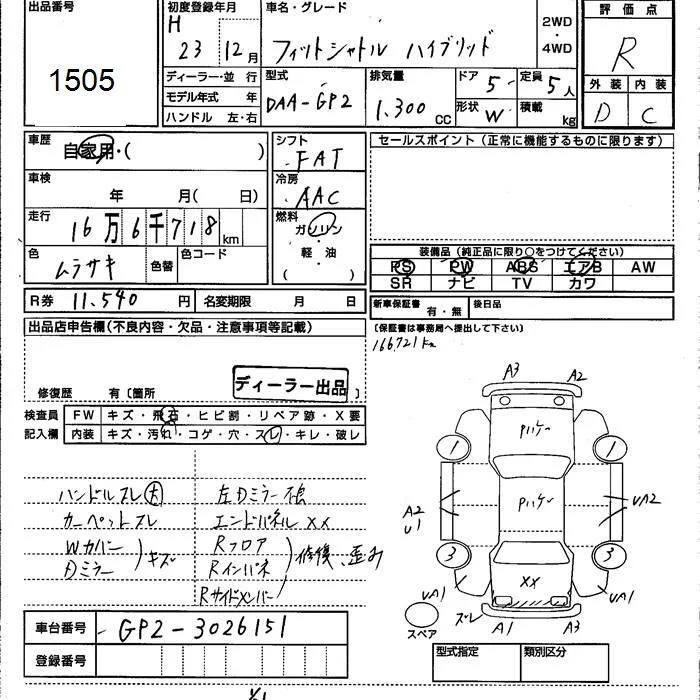 出品番号
1505
初度登録年月
H 23 12月
車名・グレード
フィットシャトル ハイブリッド
2WD・4WD
評価点
R
外装 内装
D C
ディーラー・並行
モデル年式 年
ハンドル 左・右
型式
DAA-GP2
排気量
1.300 CC
ドア 5
形状 W
定員 5人
積載 kg
車歴
自家用・( )
車検
年 月( 日)
走行
16万6千718km
色
ムラサキ
色替
色コード
シフト
FAT
冷房
AAC
燃料
ガソリン
軽・油
( )
セールスポイント(正常に機能するものに限ります)
装備品(純正品に限り○をつけてください)
PS PW ABS エアB AW
SR ナビ TV カワ
R券 11.540 円
名変期限 月 日
新車保証書 有・無
後日品
(保証書は事務局へ提出して下さい)
166721km
出品店申告欄(不良内容・欠品・注意事項等記載)
ディーラー出品
修復歴 有〔箇所 〕
検査員記入欄
FW キズ・飛石・ヒビ割・リペア跡・X要
内装 キズ・汚れ・コゲ・穴・スレ・キレ・破レ
ハンドルスレ大
カーペットスレ
Wカバー
Dミラー
キズ
左Dミラー
エンドパネルXX
Rフロア
Rインパネ
Rサイドメンバー
修復、歪み
A3 A2
Pハケー
1 1
Pハケー
A2
U1
UA2
3 3
XX
UA1 UA1
ズレ
A1 A3
スペア
車台番号 GP2-3026151
登録番号
型式指定 類別区分